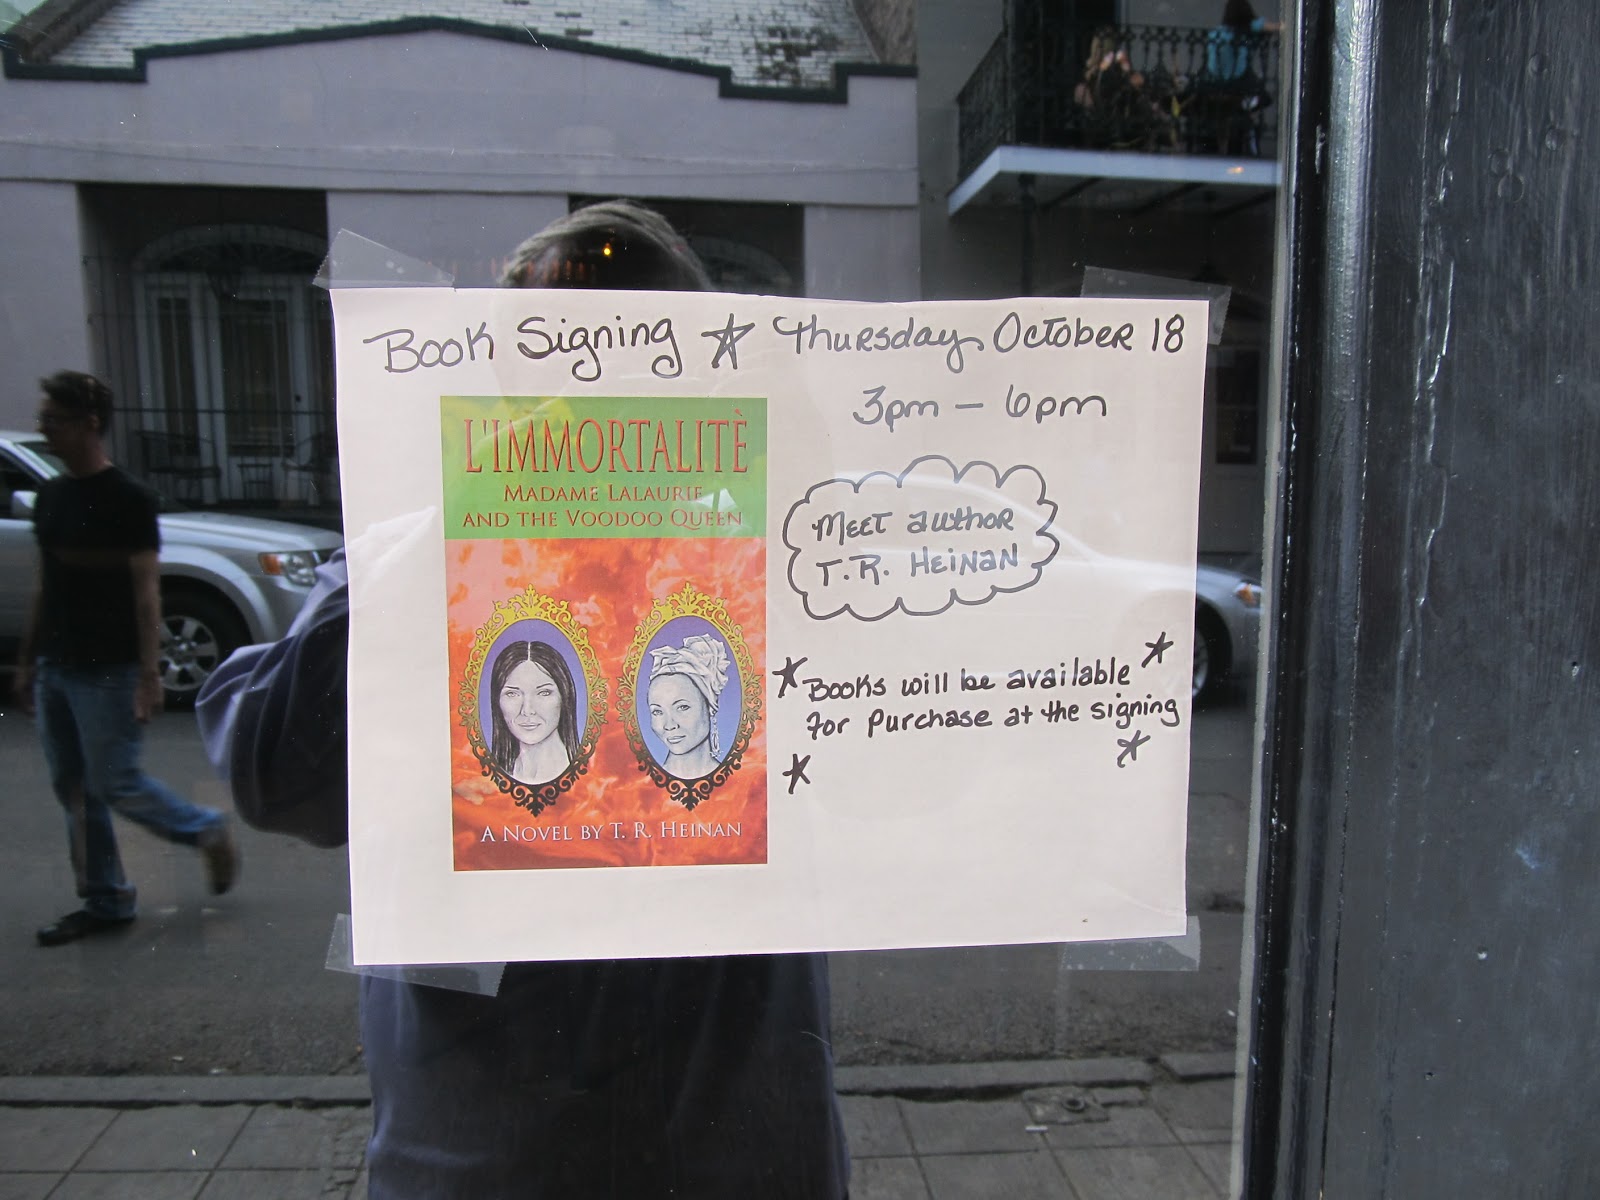 Book Signing ☆ Thursday, October 18
3pm – 6pm
L'IMMORTALITÈ
MADAME LALAURIE
AND THE VOODOO QUEEN
MEET author
T.R. HEINAN
Books will be available
for Purchase at the signing
A NOVEL BY T. R. HEINAN